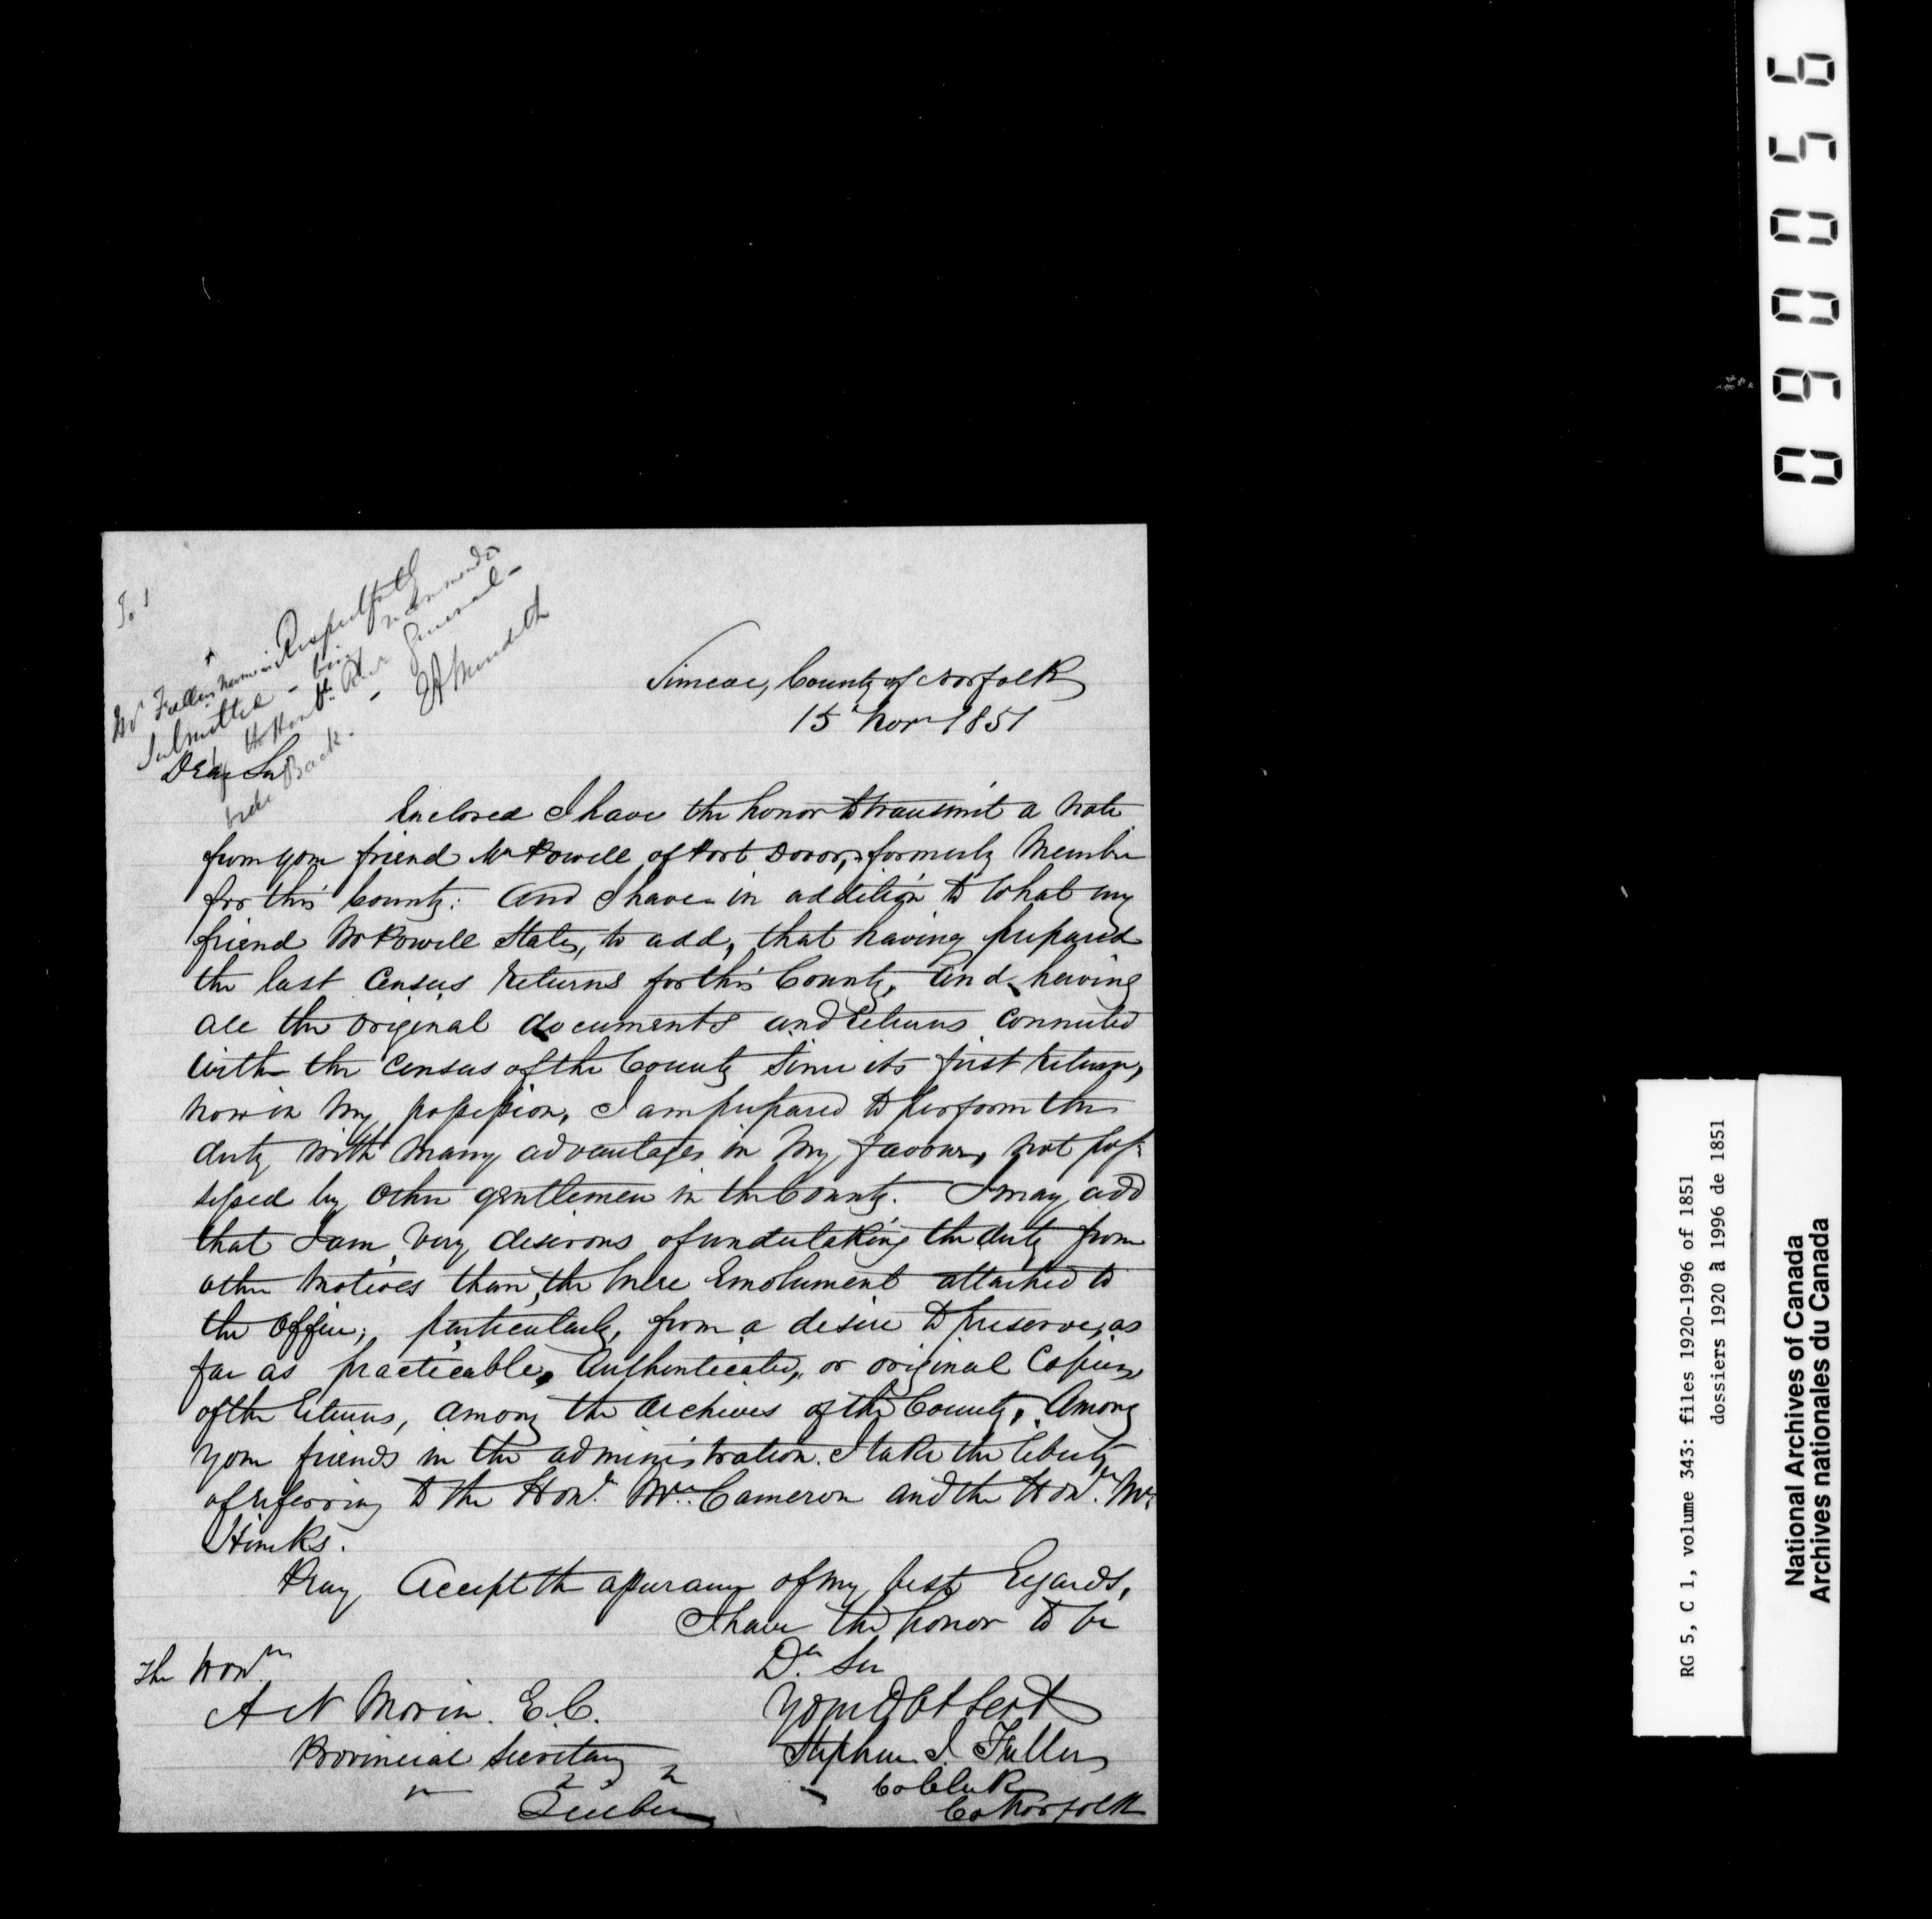 Mr Fuller's name is Respectfully
submitted - being recommended
by the Honble Recr General -
vide Back. - E A Meredith
Simcoe, County of Norfolk
15 Novr 1851
Dear Sir
Enclosed I have the honor to transmit a note
from your friend Mr Powell of Port Dover, formerly Member
for this County: And I have in addition to what my
friend Mr Powell states, to add, that having prepared
the last Census Returns for this County, and having
all the original documents and Returns connected
with the Census of the County since its first Return,
now in my possession, I am prepared to perform the
duty with many advantages in my favour, not pos-
sessed by other gentlemen in the County. I may add
that I am very desirous of undertaking the duty from
other motives than the mere Emolument attached to
the Office; particularly, from a desire to preserve, as
far as practicable, Authenticated, or original Copies
of the Returns, among the Archives of the County. Among
your friends in the administration I take the liberty
of referring to the Honl. Mr. Cameron and the Honl. Mr.
Hincks.
Pray Accept the assurance of my best Regards,
I have the honor to be
Dr. Sir
Your Obt Servt
Stephen J. Fuller
Co Clerk
Co Norfolk
The Honble
A N Morin. E.C.
Provincial Secretary
Quebec
090056
RG 5, C 1, volume 343: files 1920-1996 of 1851
dossiers 1920 à 1996 de 1851
National Archives of Canada
Archives nationales du Canada